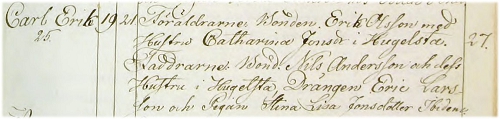 Carl Erik 19 21 Föräldrarne Bonden Erik Olsson med
25. Hustru Catharina Jonsdr i Hugelsta. 27.
Faddrarne Bond. Nils Andersson och dess
Hustru i Hugelsta, Drängen Eric Lars-
son och Pigan Stina Lisa Jonsdotter Ibidem